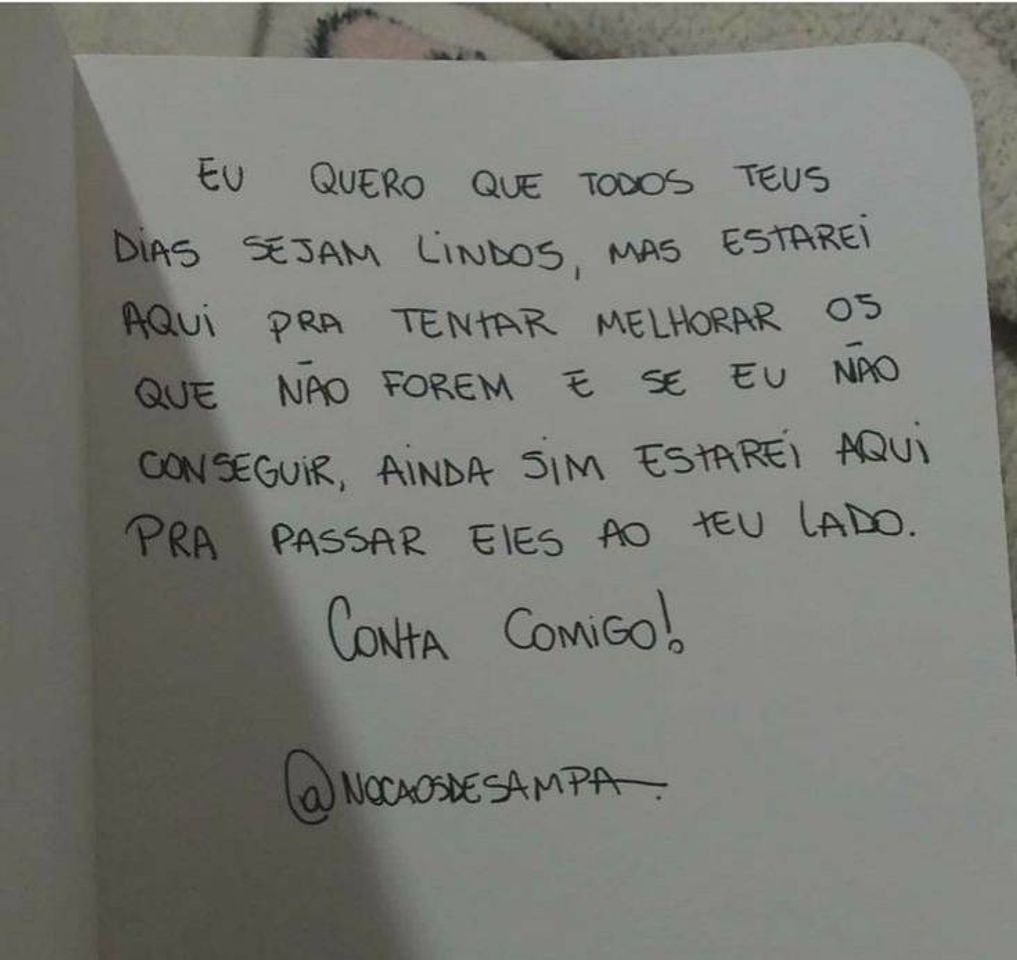 EU QUERO QUE TODOS TEUS
DIAS SEJAM LINDOS, MAS ESTAREI
AQUI PRA TENTAR MELHORAR OS
QUE NÃO FOREM E SE EU NÃO
CONSEGUIR, AINDA SIM ESTAREI AQUI
PRA PASSAR ELES AO TEU LADO.
CONTA COMIGO!
@NOCAOSDESAMPA